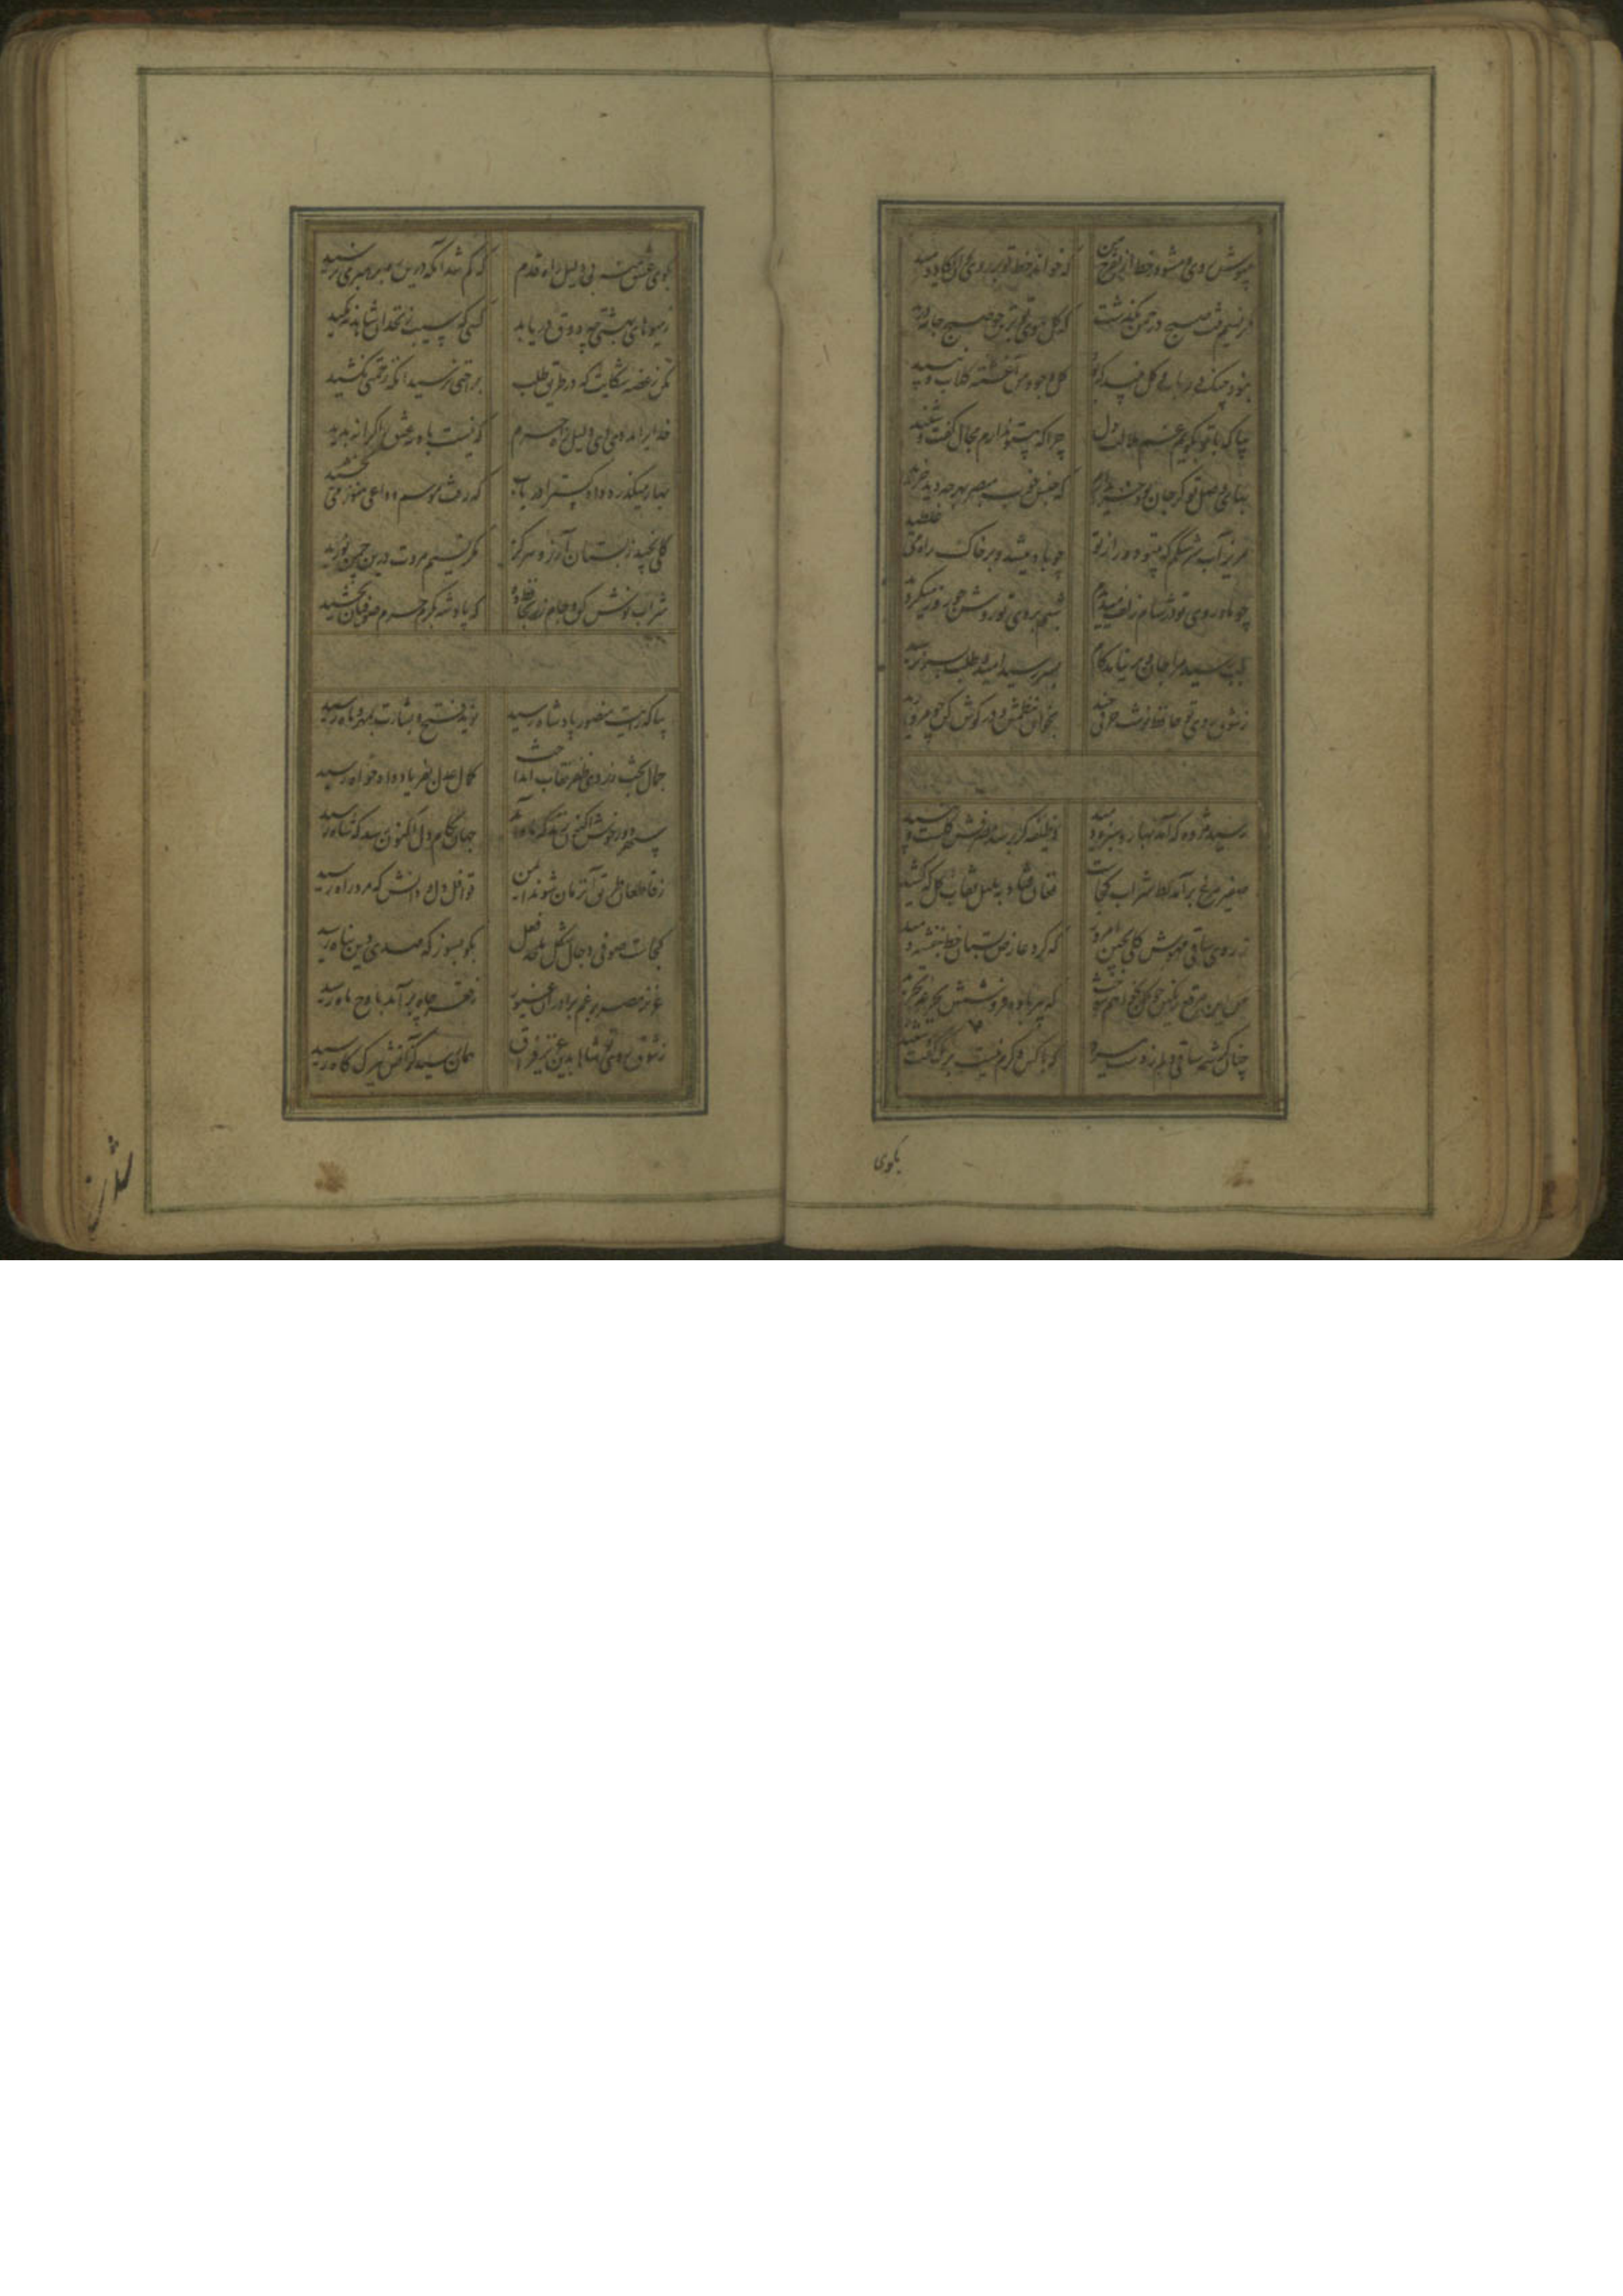 بپوش روی و مشو در خط از تفرج
که خواند خط تو بر روی
مگر نسیم خطت صبح در چمن بگذشت
که گل ببوی تو بر تن چو صبح جامه درید
نبود چنگ و رباب و گل و نبید که بود
گل وجود من آغشته گلاب و نبید
بیا که با تو بگویم غم ملالت دل
چرا که بی تو ندارم مجال گفت و شنید
بهای وصل تو گر جان بود خریدارم
که جنس خوب مبصر بهر چه دید خرید
مریز آب سرشکم که بی تو دور از تو
چو باد میشد و بر خاک راه می غلطید
چو ماه روی تو در شام زلف میدیدم
شبم بروی تو روشن چو روز میگردید
بلب رسید مرا جان و بر نیامد کام
بسر رسید امید و طلب بسر نرسید
ز شوق روی تو حافظ نوشت حرفی چند
بخوان ز نظمش و در گوش کن چو مروارید
رسید مژده که آمد بهار و سبزه دمید
وظیفه گر برسد مصرفش گلست و نبید
صفیر مرغ برآمد بط شراب کجاست
فغان فتاد به بلبل نقاب گل که کشید
ز روی ساقی مهوش گلی بچین امروز
که گرد عارض بستان خط بنفشه دمید
من این مرقع رنگین چو گل بخواهم سوخت
که پیر باده فروشش بجرعه نخرید
چنان کرشمه ساقی دلم ز دست ببرد
که با کس دگرم نیست برگ گفت و شنید
بکوی
بکوی عشق منه بی دلیل راه قدم
که گم شد آنکه درین ره برهبری نرسید
ز میوهای بهشتی چه ذوق دریابد
کسی که سیب زنخدان شاهدی نگزید
مکن ز غصه شکایت که در طریق طلب
براحتی نرسید آنکه زحمتی نکشید
خدایرا مددی ای دلیل راه حرم
که نیست بادیه عشق را کرانه پدید
بهار میگذرد دادگسترا دریاب
که رفت موسم و حافظ هنوز می نچشید
گلی نچید ز بستان آرزو هرگز
مگر نسیم مروت درین چمن نوزید
شراب نوش کن و جام زر بحافظ ده
که پادشه بکرم جرم صوفیان بخشید
بیا که رایت منصور پادشاه رسید
نوید فتح و بشارت بمهر و ماه رسید
جمال بخت ز روی ظفر نقاب انداخت
کمال عدل بفریاد دادخواه رسید
سپهر دور خوش اکنون کند که ماه آمد
جهان بکام دل اکنون رسد که شاه رسید
ز قاطعان طریق آنزمان شوند ایمن
قوافل دل و دانش که مرد راه رسید
کجاست صوفی دجال شکل ملحد فعل
بگو بسوز که مهدی دین پناه رسید
عزیز مصر برغم برادران غیور
ز قعر چاه برآمد باوج ماه رسید
ز شوق روی تو شاها بدین اسیر فراق
همان رسید کز آتش ببرگ کاه رسید